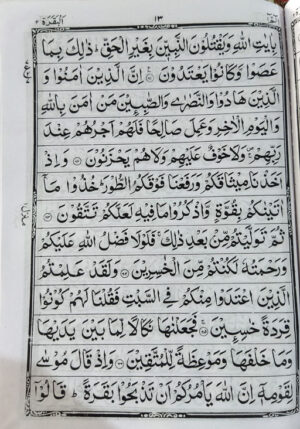 البقرة ٢ ١٣ الٓمّٓ ١
بِاٰيٰتِ اللّٰهِ وَيَقْتُلُوْنَ النَّبِيّٖنَ بِغَيْرِ الْحَقِّ ؕ ذٰلِكَ بِمَا
عَصَوْا وَّكَانُوْا يَعْتَدُوْنَ ۝ اِنَّ الَّذِيْنَ اٰمَنُوْا وَ
الَّذِيْنَ هَادُوْا وَالنَّصٰرٰى وَالصّٰبِـِٕيْنَ مَنْ اٰمَنَ بِاللّٰهِ
وَالْيَوْمِ الْاٰخِرِ وَعَمِلَ صَالِحًا فَلَهُمْ اَجْرُهُمْ عِنْدَ
رَبِّهِمْ ۚ وَلَا خَوْفٌ عَلَيْهِمْ وَلَا هُمْ يَحْزَنُوْنَ ۝ وَاِذْ
اَخَذْنَا مِيْثَاقَكُمْ وَرَفَعْنَا فَوْقَكُمُ الطُّوْرَ ؕ خُذُوْا مَاۤ
اٰتَيْنٰكُمْ بِقُوَّةٍ وَّاذْكُرُوْا مَا فِيْهِ لَعَلَّكُمْ تَتَّقُوْنَ ۝
ثُمَّ تَوَلَّيْتُمْ مِّنْۢ بَعْدِ ذٰلِكَ ۚ فَلَوْلَا فَضْلُ اللّٰهِ عَلَيْكُمْ
وَرَحْمَتُهٗ لَكُنْتُمْ مِّنَ الْخٰسِرِيْنَ ۝ وَلَقَدْ عَلِمْتُمُ
الَّذِيْنَ اعْتَدَوْا مِنْكُمْ فِي السَّبْتِ فَقُلْنَا لَهُمْ كُوْنُوْا
قِرَدَةً خٰسِـِٕيْنَ ۝ فَجَعَلْنٰهَا نَكَالًا لِّمَا بَيْنَ يَدَيْهَا
وَمَا خَلْفَهَا وَمَوْعِظَةً لِّلْمُتَّقِيْنَ ۝ وَاِذْ قَالَ مُوْسٰى
لِقَوْمِهٖۤ اِنَّ اللّٰهَ يَاْمُرُكُمْ اَنْ تَذْبَحُوْا بَقَرَةً ؕ قَالُوْۤا